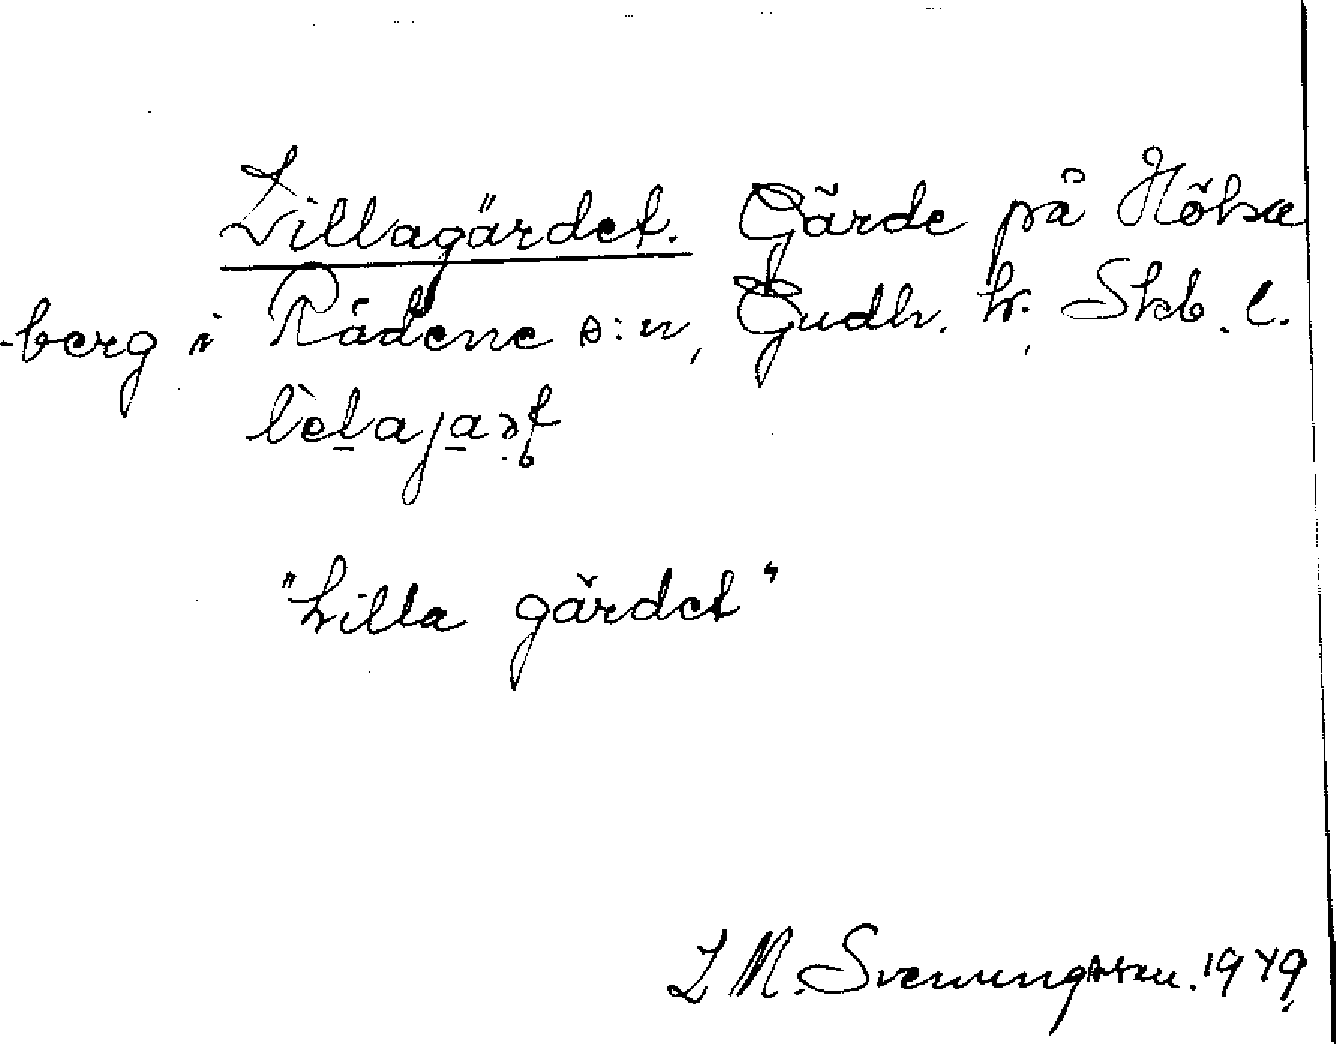 Lillagärdet. Gärde på Höka
-berg i Rådene s:n, Gudh. h. Skb. l.
"Lilla gärdet"
L M. Svenungsson. 1949